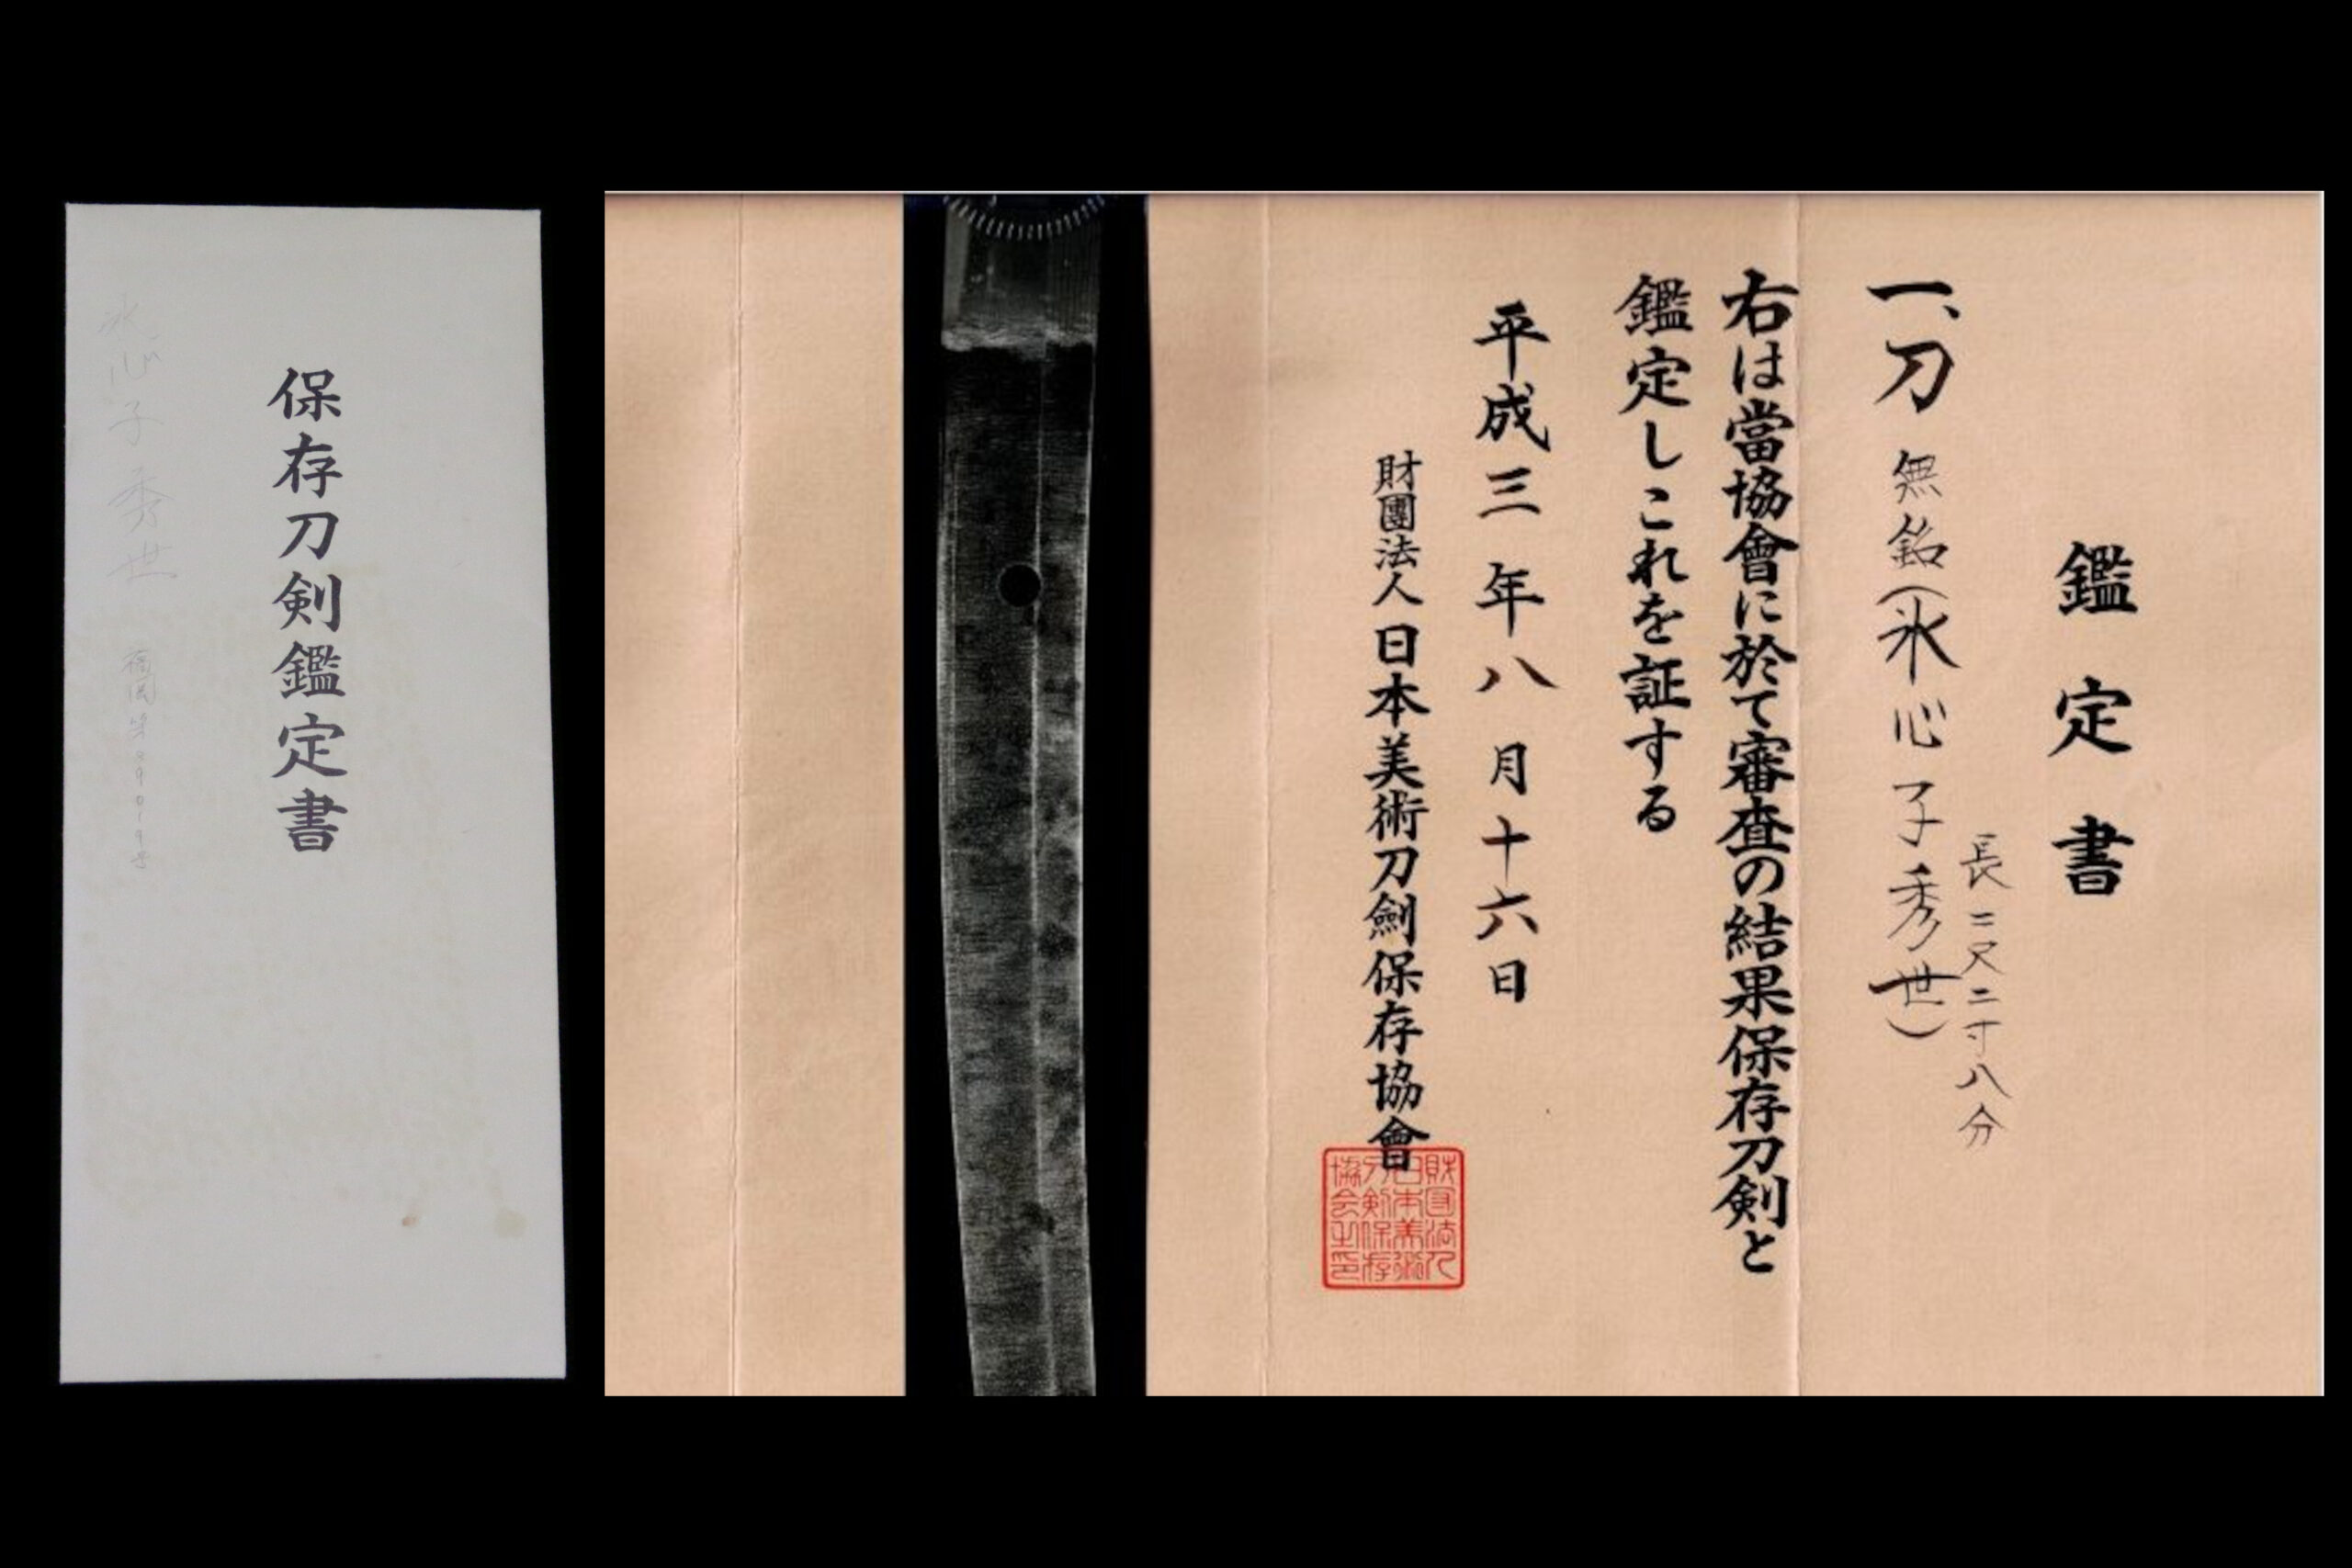 保存刀剣鑑定書
氷心子秀世
鑑定書
一、刀 無銘(氷心子秀世)
長二尺二寸八分
右は當協會に於て審査の結果保存刀剣と
鑑定しこれを証する
平成三年八月十六日
財團法人日本美術刀劍保存協會
財団法人
日本美術
刀剣保存
協会之印